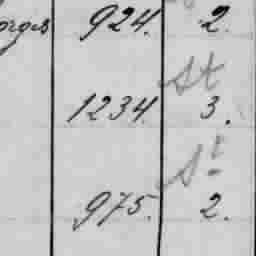 924. 2.
St
1234. 3.
St
975. 2.